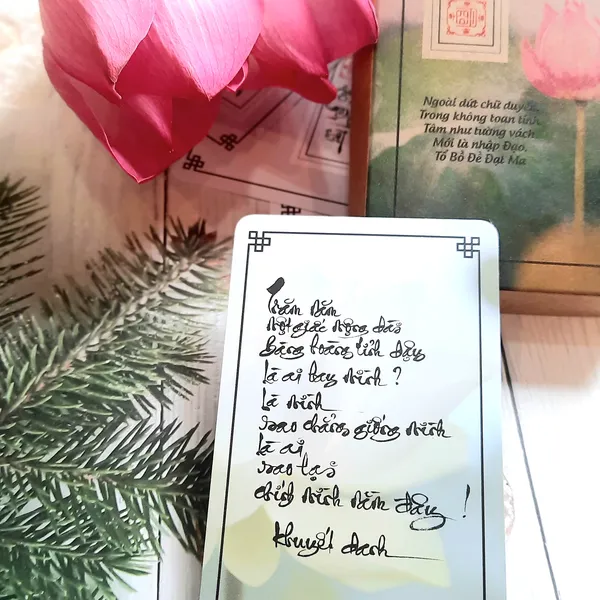 Ngoài dứt chữ duyên,
Trong không toan tính,
Tâm như tường vách,
Mới là nhập Đạo.
Tổ Bồ Đề Đạt Ma
Trăm năm
Một giấc mộng dài
Bàng hoàng tỉnh dậy
Là ai hay mình ?
Là mình
sao chẳng giống mình
Là ai
sao lại
chính mình nằm đây !
Khuyết danh